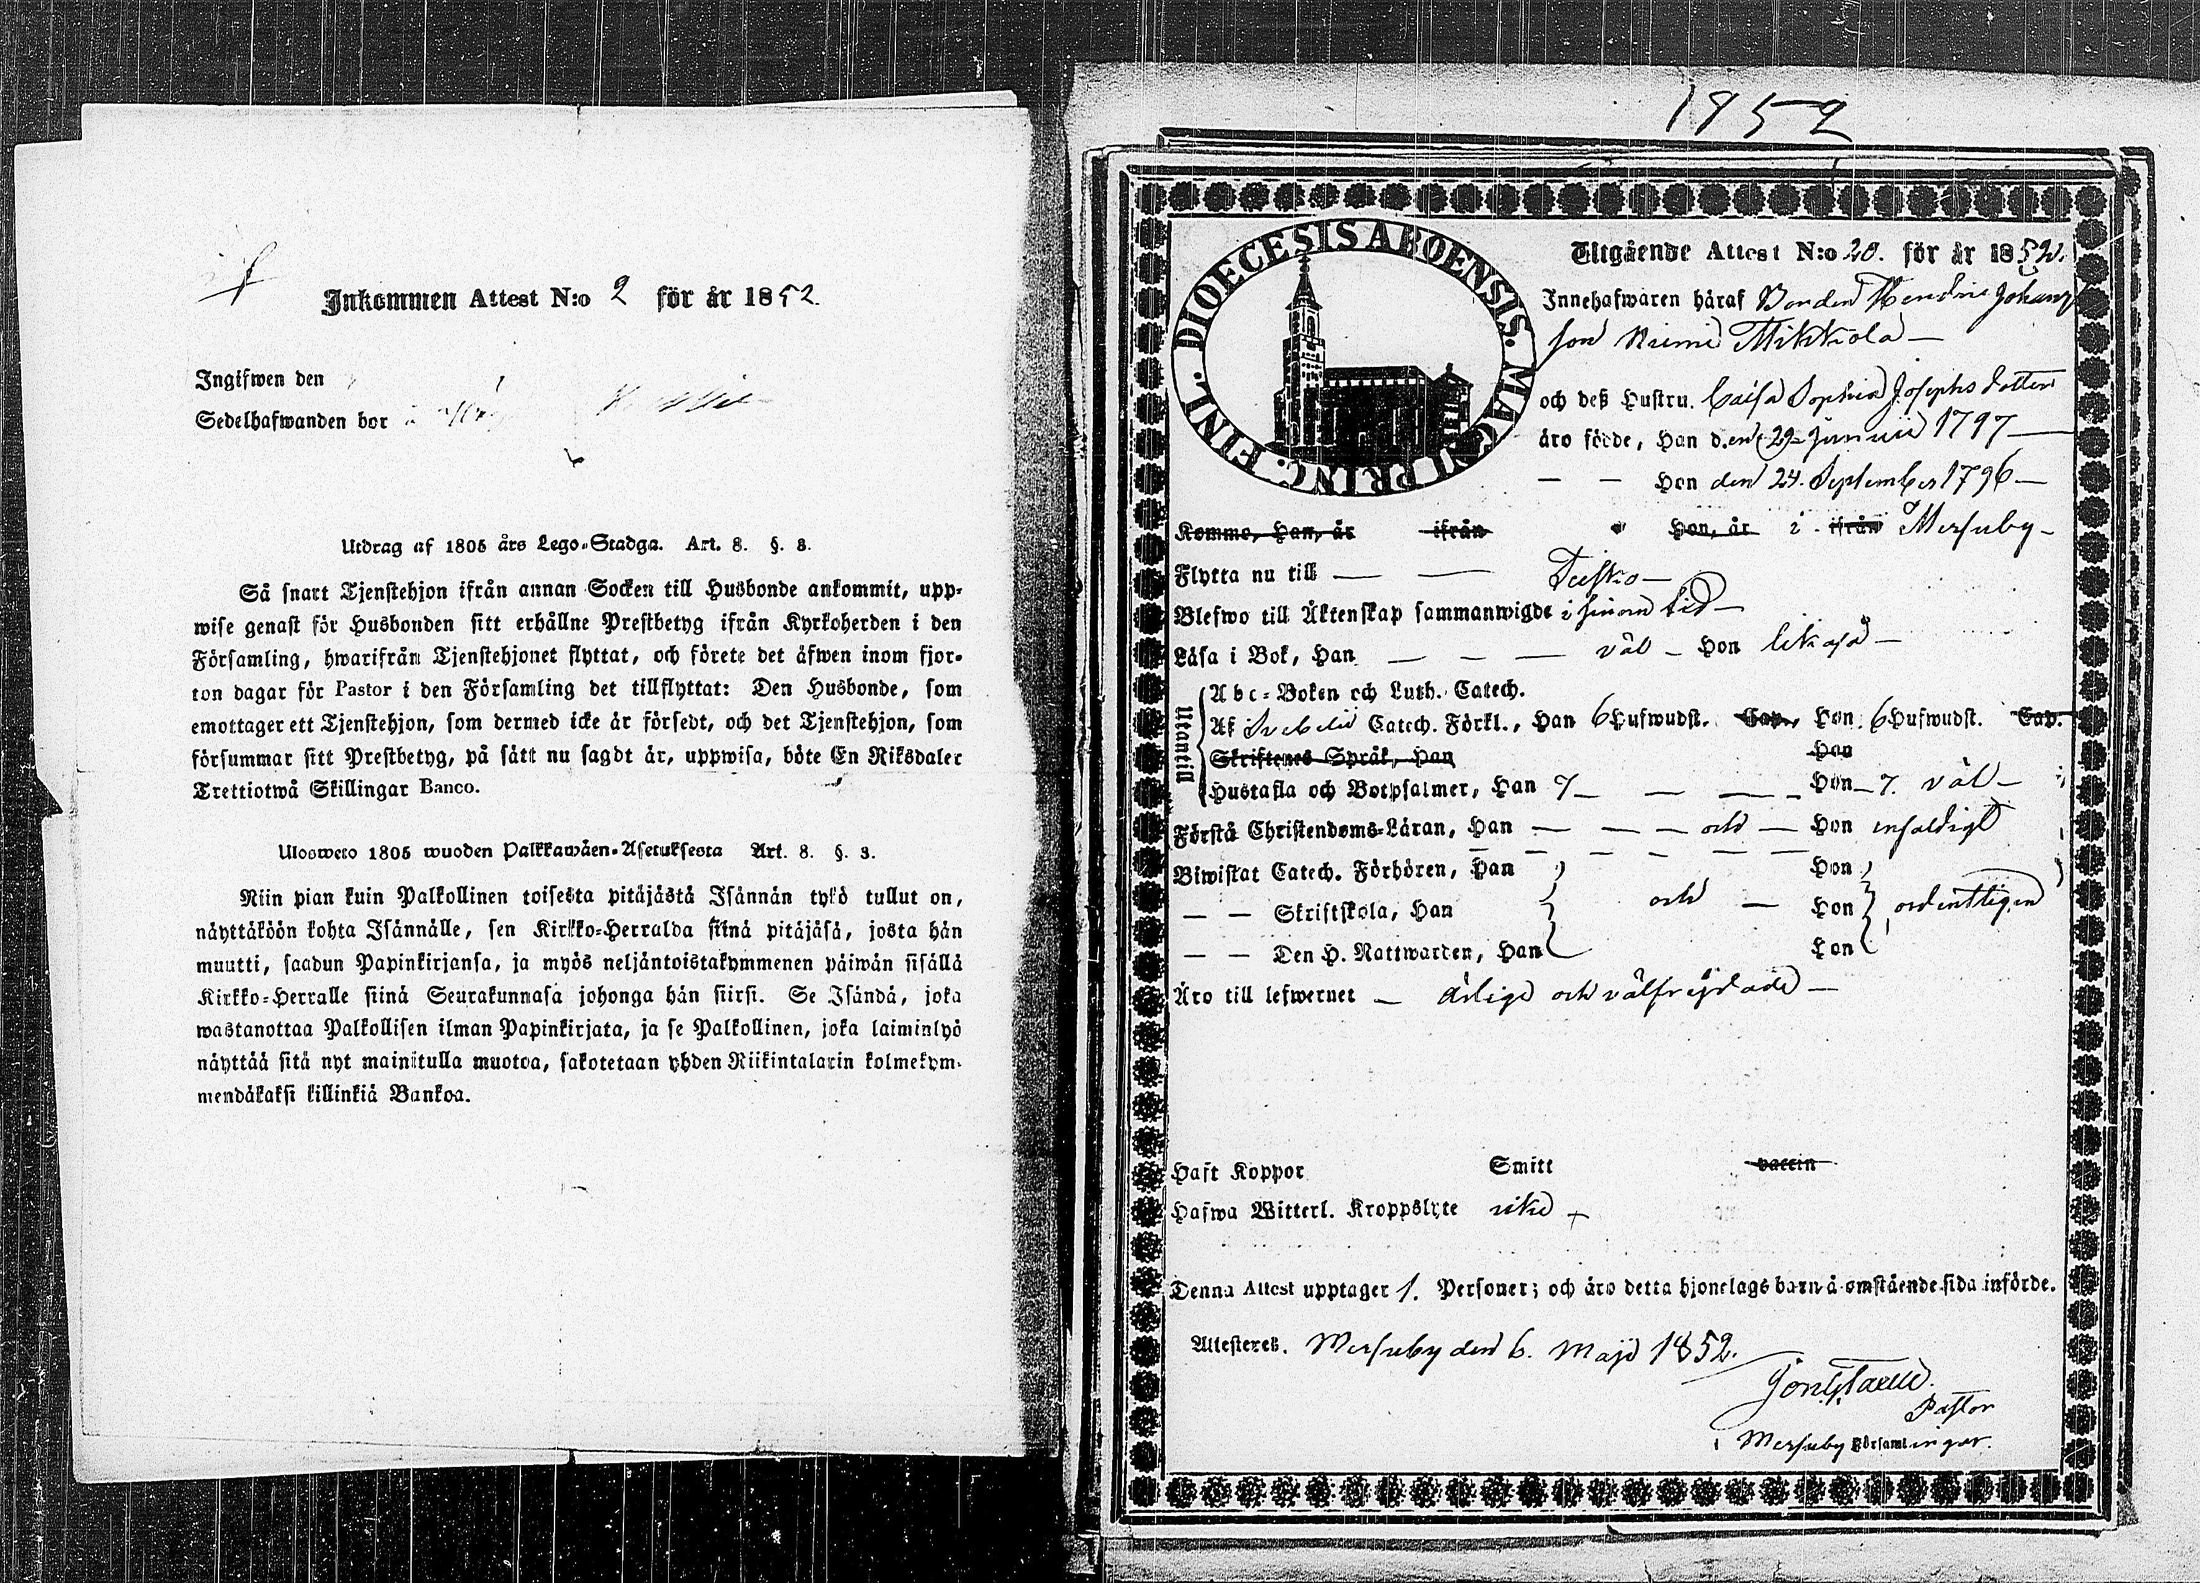 Inkommen Attest N:o 2 för år 1852.
Ingifwen den
Sedelhafwanden bor
Utdrag af 1805 års Lego-Stadga. Art. 8. §. 3.
Så snart Tjenstehjon ifrån annan Socken till Husbonde ankommit, upp-
wise genast för Husbonden sitt erhållne Prestbetyg ifrån Kyrkoherden i den
Församling, hwarifrån Tjenstehjonet flyttat, och förete det äfwen inom fjor-
ton dagar för Pastor i den Församling det tillflyttat: Den Husbonde, som
emottager ett Tjenstehjon, som dermed icke är försedt, och det Tjenstehjon, som
försummar sitt Prestbetyg, på sätt nu sagdt är, uppwisa, böte En Riksdaler
Trettiotwå Skillingar Banco.
Ulosweto 1805 wuoden Palkkawäen-Asetuksesta Art. 8. §. 3.
Niin pian kuin Palkollinen toisesta pitäjästä Isännän tykö tullut on,
näyttäköön kohta Isännälle, sen Kirkko-Herralda siinä pitäjäsä, josta hän
muutti, saadun Papinkirjansa, ja myös neljäntoistakymmenen päiwän sisällä
Kirkko-Herralle siinä Seurakunnasa johonga hän siirsi. Se Isändä, joka
wastanottaa Palkollisen ilman Papinkirjata, ja se Palkollinen, joka laiminlyö
näyttää sitä nyt mainitulla muotoa, sakotetaan yhden Riikintalarin kolmekym-
mendäkaksi killinkiä Bankoa.
1852
DIOECESIS ABOENSIS. MAGN. PRINC. FINL.
Utgående Attest N:o 20. för år 1852.
Innehafwaren häraf Bonden Hendric Johans
son Niemi Mikkola —
och deß Hustru. Caisa Sophia Josephs dotter
äro födde, Han den 29 Junii 1797 —
— — Hon den 24. September 1796 —
Komme, Han, år ifrån Hon, år i ifrån Merimasku
Flytta nu till — —
Blefwo till Äktenskap sammanwigde i sinom tid —
Läsa i Bok, Han — — — väl — Hon likaså —
Utantill
Abc-Boken och Luth. Catech.
Af Svebelii Catech. Förkl., Han 6 Hufwudst. Cap., Hon 6 Hufwudst. Cap.
Skriftenes Språk, Han Hon
Hustafla och Botpsalmer, Han 7 — — — Hon — 7. väl —
Förstå Christendoms-Läran, Han — — — och — Hon enfaldigt
Biwistat Catech. Förhören, Han Hon
— — Skriftskola, Han och — Hon ordentligen
— — Den H. Nattwarden, Han Hon
Äro till lefwernet — ärlige och välfrejdade —
Haft Koppor Smitt vaccin
Hafwa Witterl. Kroppslyte icke
Denna Attest upptager 1. Personer; och äro detta hjonelags barn å omstående sida införde.
Attesteres. den 6. Maji 1852.
Pastor
i Församlingar.